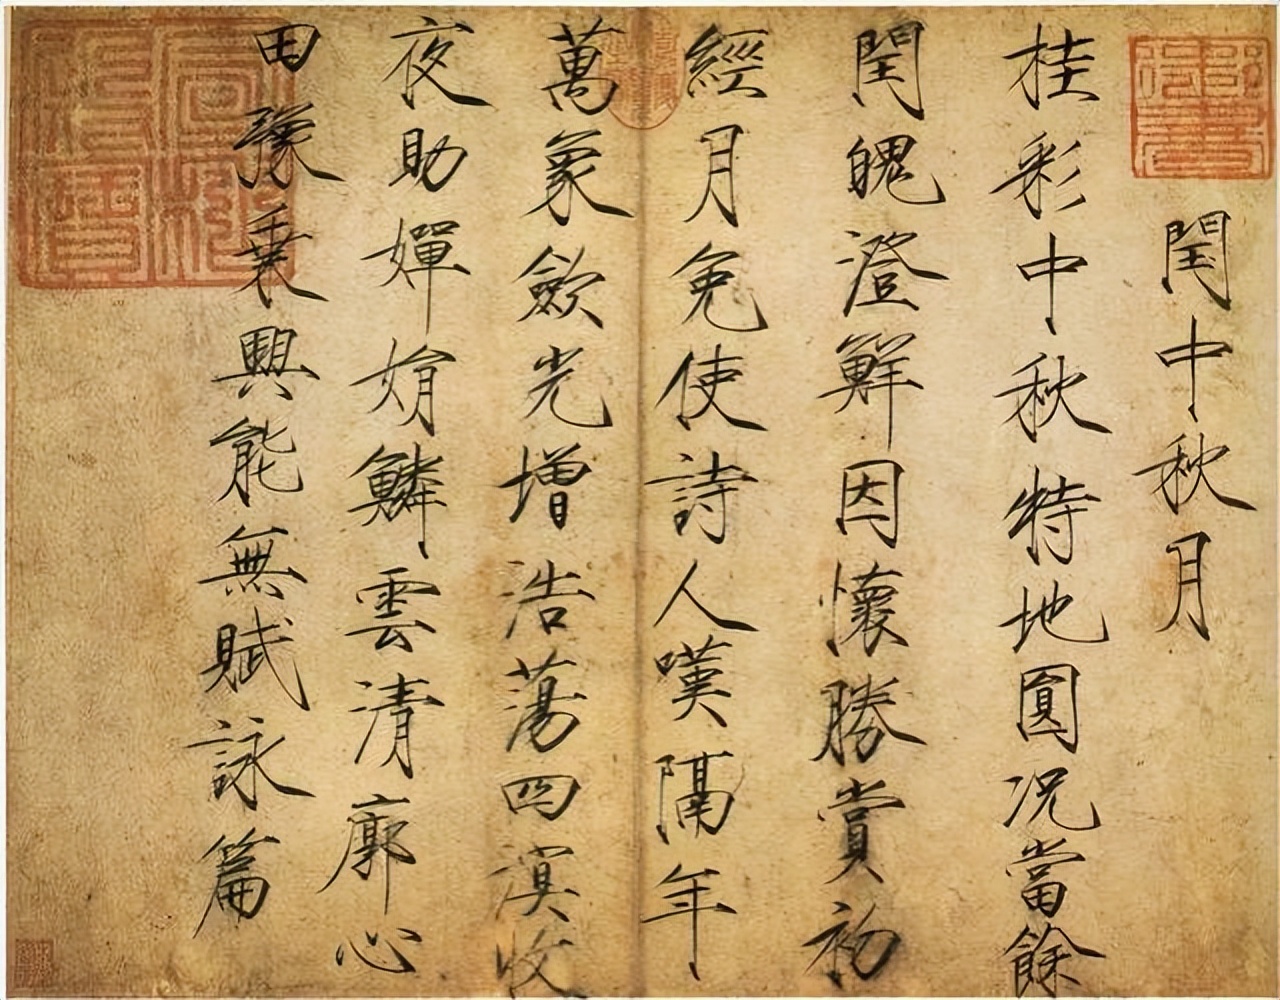 閏中秋月
桂彩中秋特地圓況當餘
閏魄澄鮮因懷勝賞初
經月免使詩人嘆隔年
萬象歛光增浩蕩四溟收
夜助嬋娟鱗雲清廓心
田豫乗興能無賦詠篇